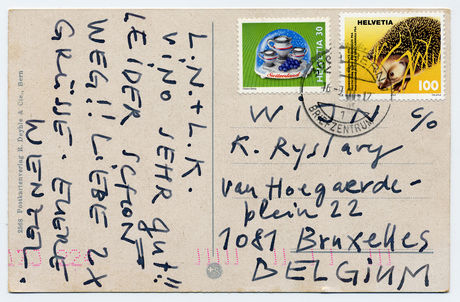 L.N.+L.K.
VINO SEHR gut!!
LEIDER SCHON
WEG!!! LIEBE 2X
GRÜSSE. EUERE
2568 Postkartenverlag R. Deyhle & Cie., Bern
HELVETIA 30
HELVETIA
100
BRIEFZENTRUM
W I M N c/o
K. Rystavy
van Hoegaerde-
plein 22
1081 Bruxelles
BELGIUM